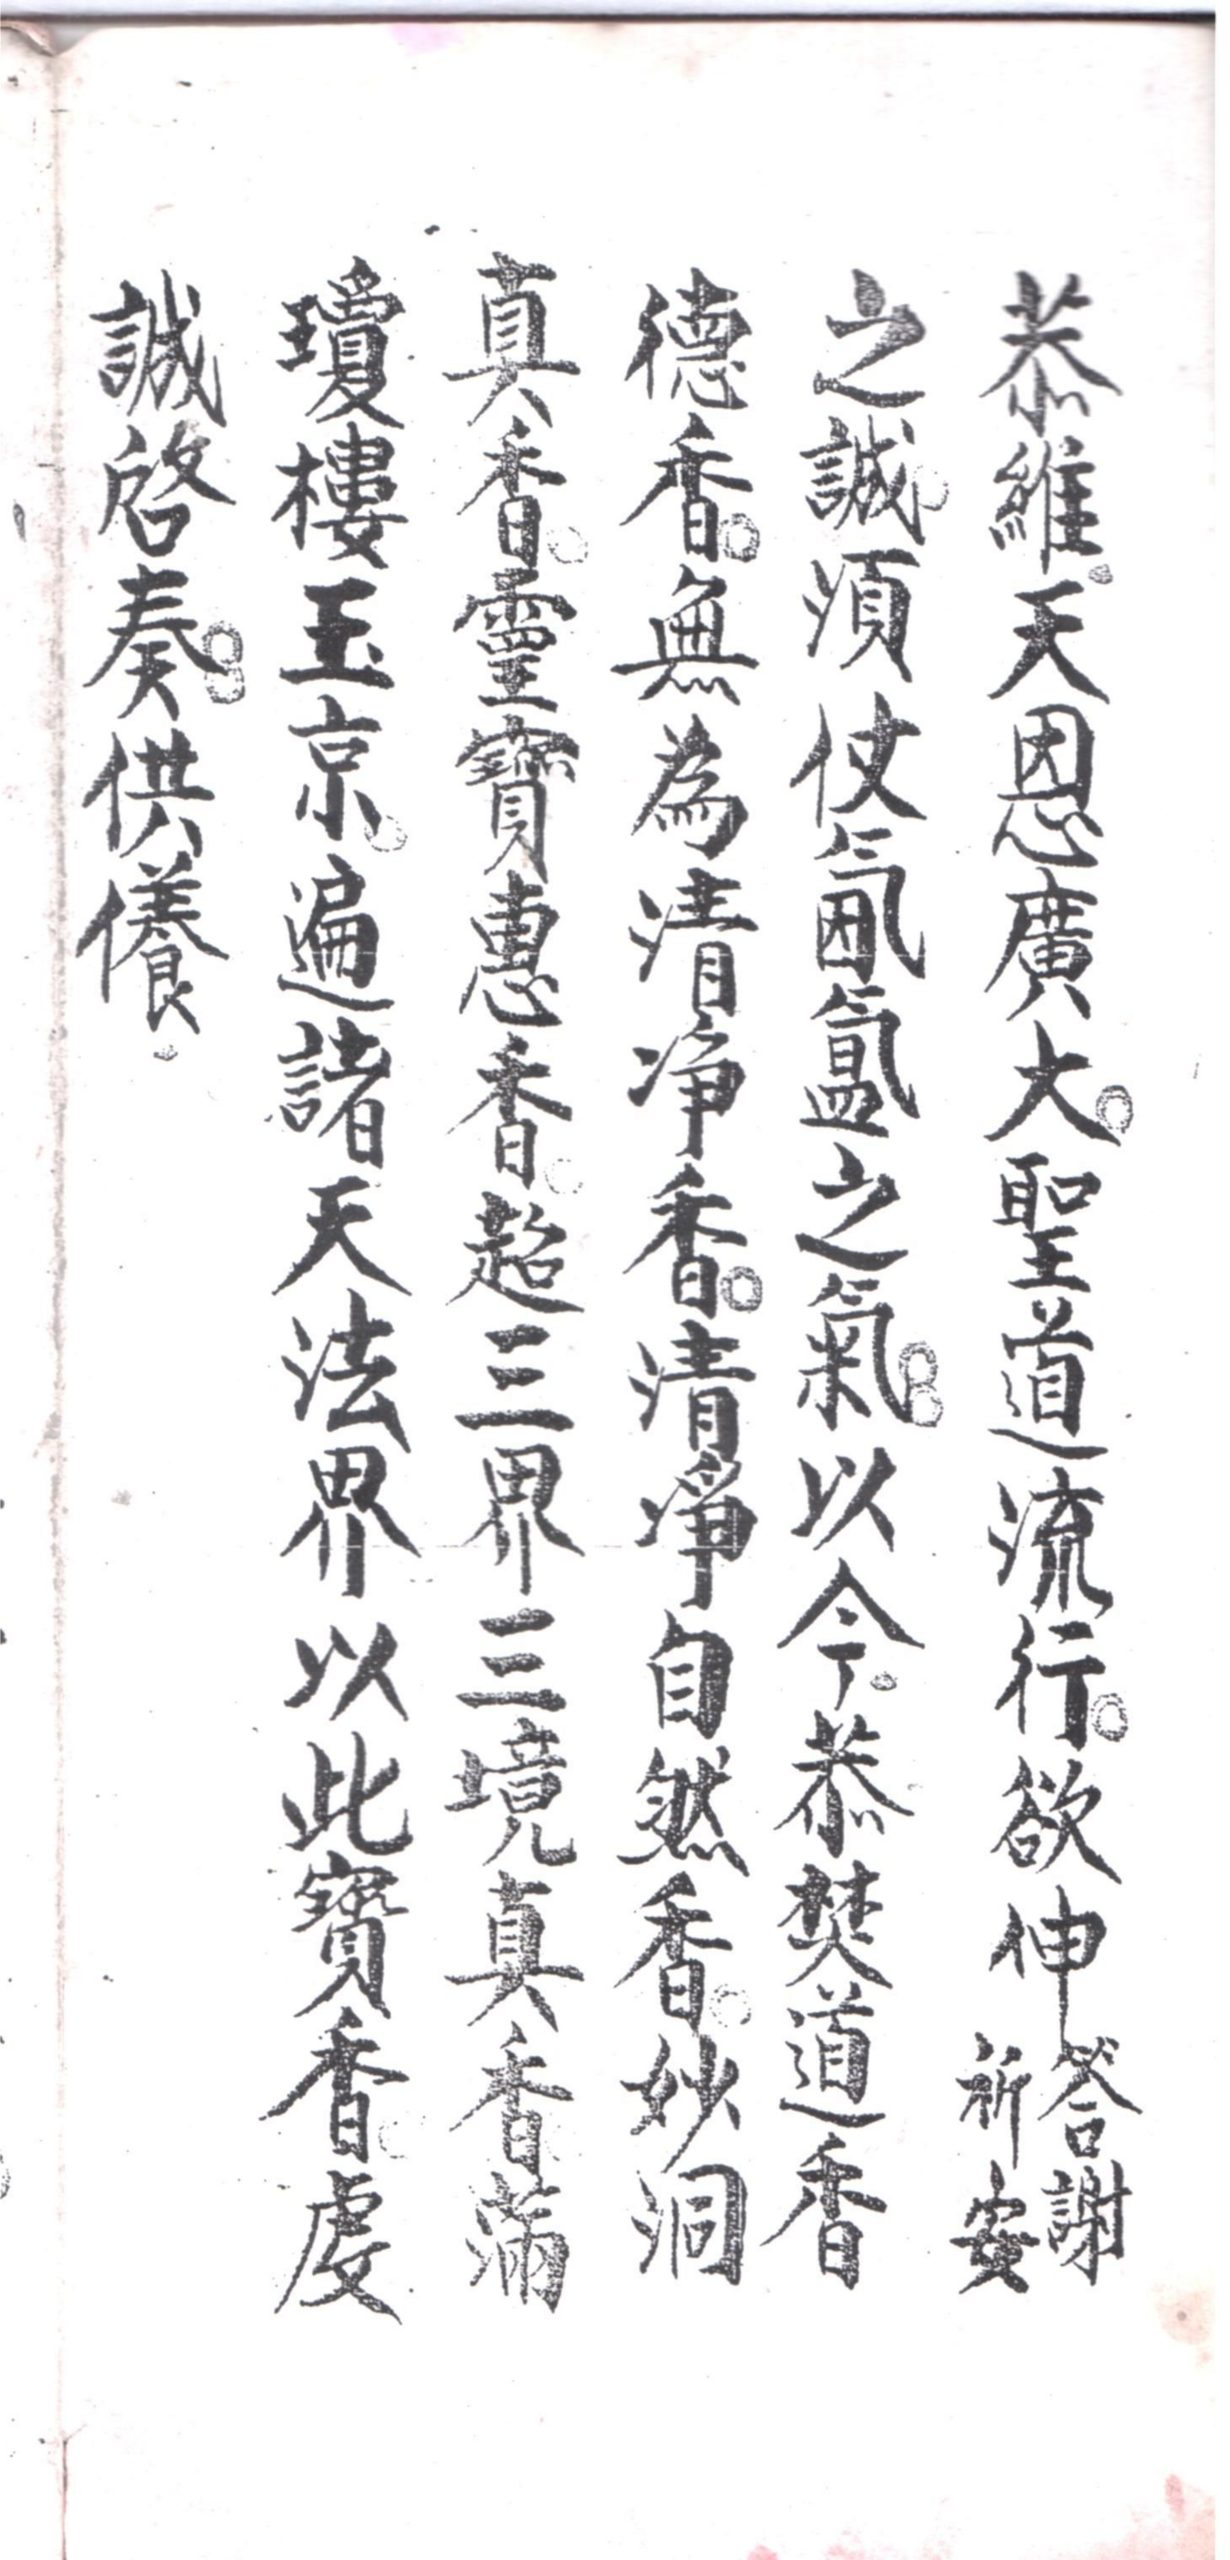 恭維天恩廣大聖道流行欲伸答謝祈安
之誠須仗氤氳之氣以今恭焚道香
德香無為清淨香清淨自然香妙洞
真香靈寶惠香超三界三境真香滿
瓊樓玉京遍諸天法界以此寶香虔
誠啓奏供養